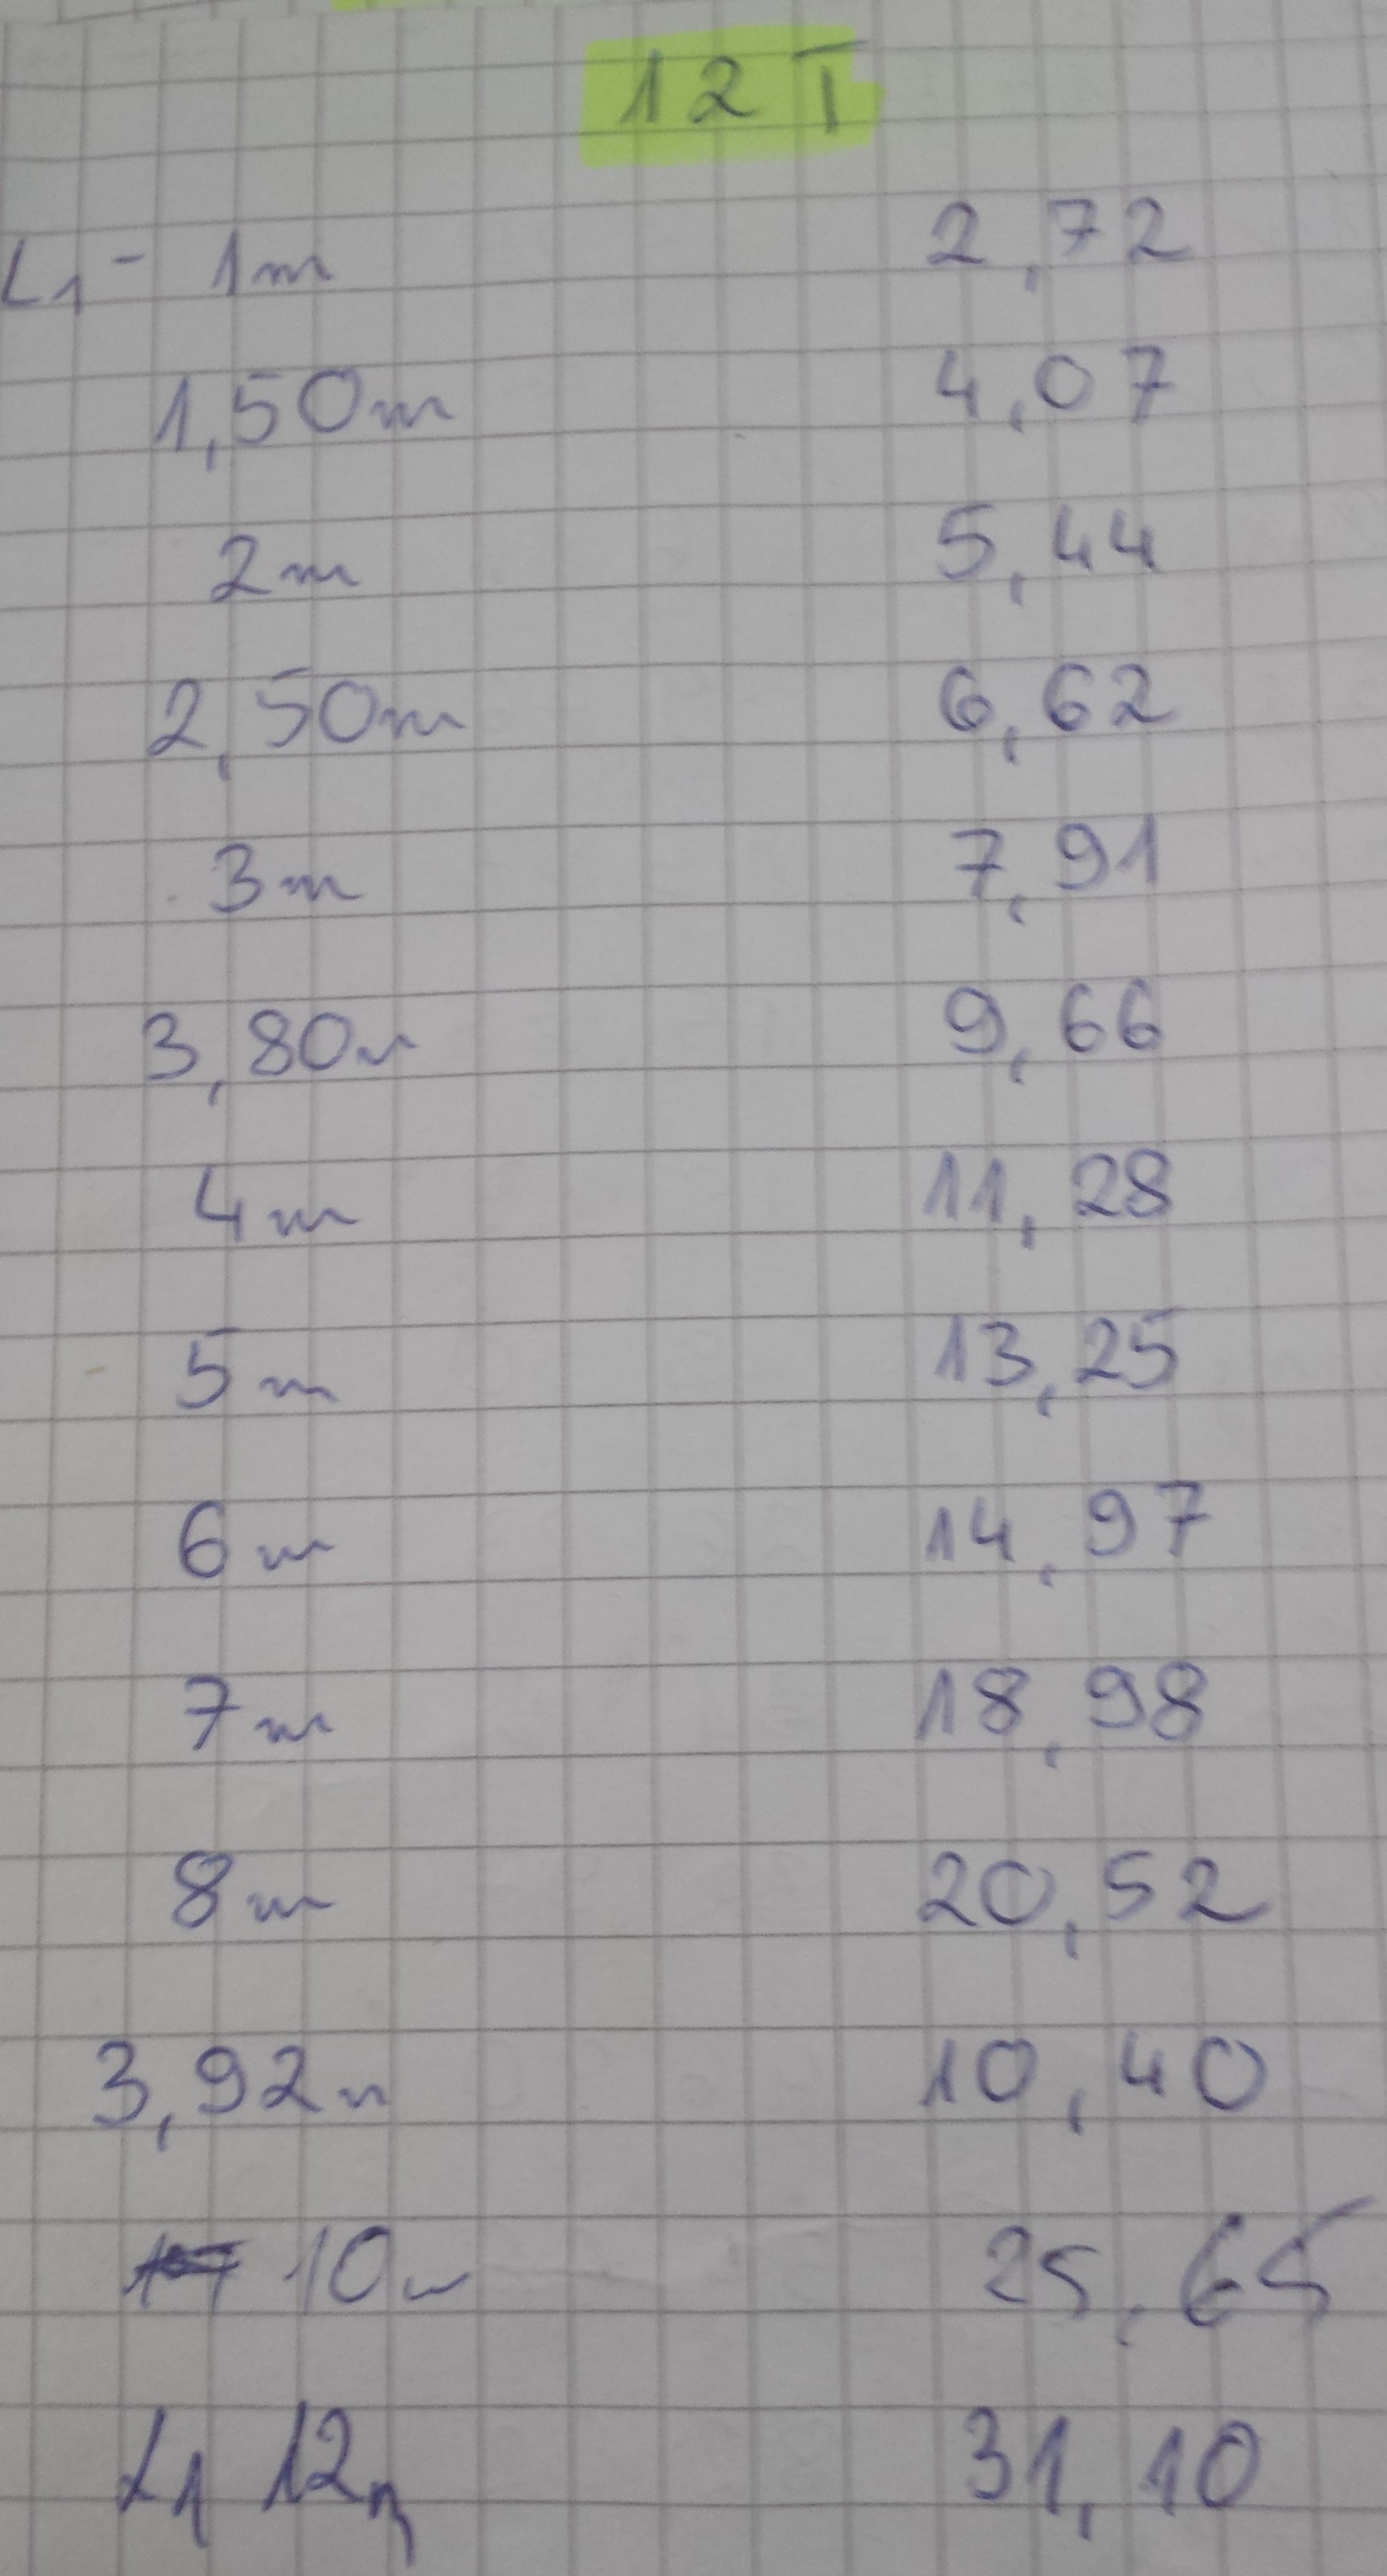 12 T
L1- 1m 2,72
1,50m 4,07
2m 5,44
2,50m 6,62
3m 7,91
3,80m 9,66
4m 11,28
5m 13,25
6m 14,97
7m 18,98
8m 20,52
3,92m 10,40
10m 25,65
L1 12m 31,10